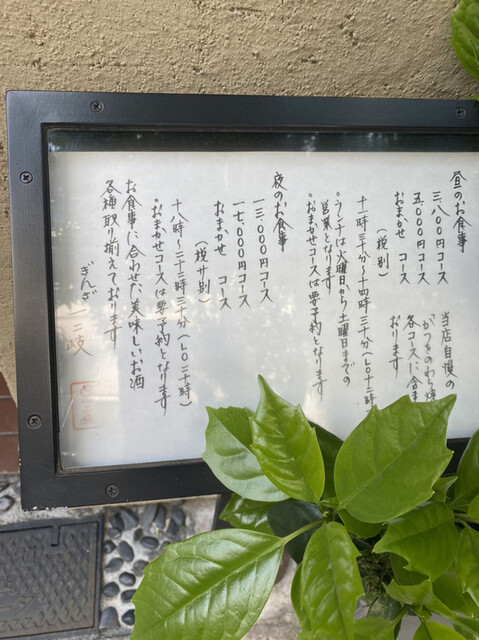 昼のお食事
三、八〇〇円コース
五、〇〇〇円コース
おまかせ コース
(税別)
十一時三十分〜十四時三十分(L.O十三
°ランチは火曜日から土曜日までの
営業となります
°おまかせコースは要予約となります
当店自慢の
かつをのわら焼
各コースに含ま
おります
夜のお食事
一三、〇〇〇円コース
一七、〇〇〇円コース
おまかせ コース
(税サ別)
十八時〜二十三時三十分(L.O二十時)
°おまかせコースは要予約となります
お食事に合わせた、美味しいお酒
各種取り揃えております
ぎんざ 一二岐